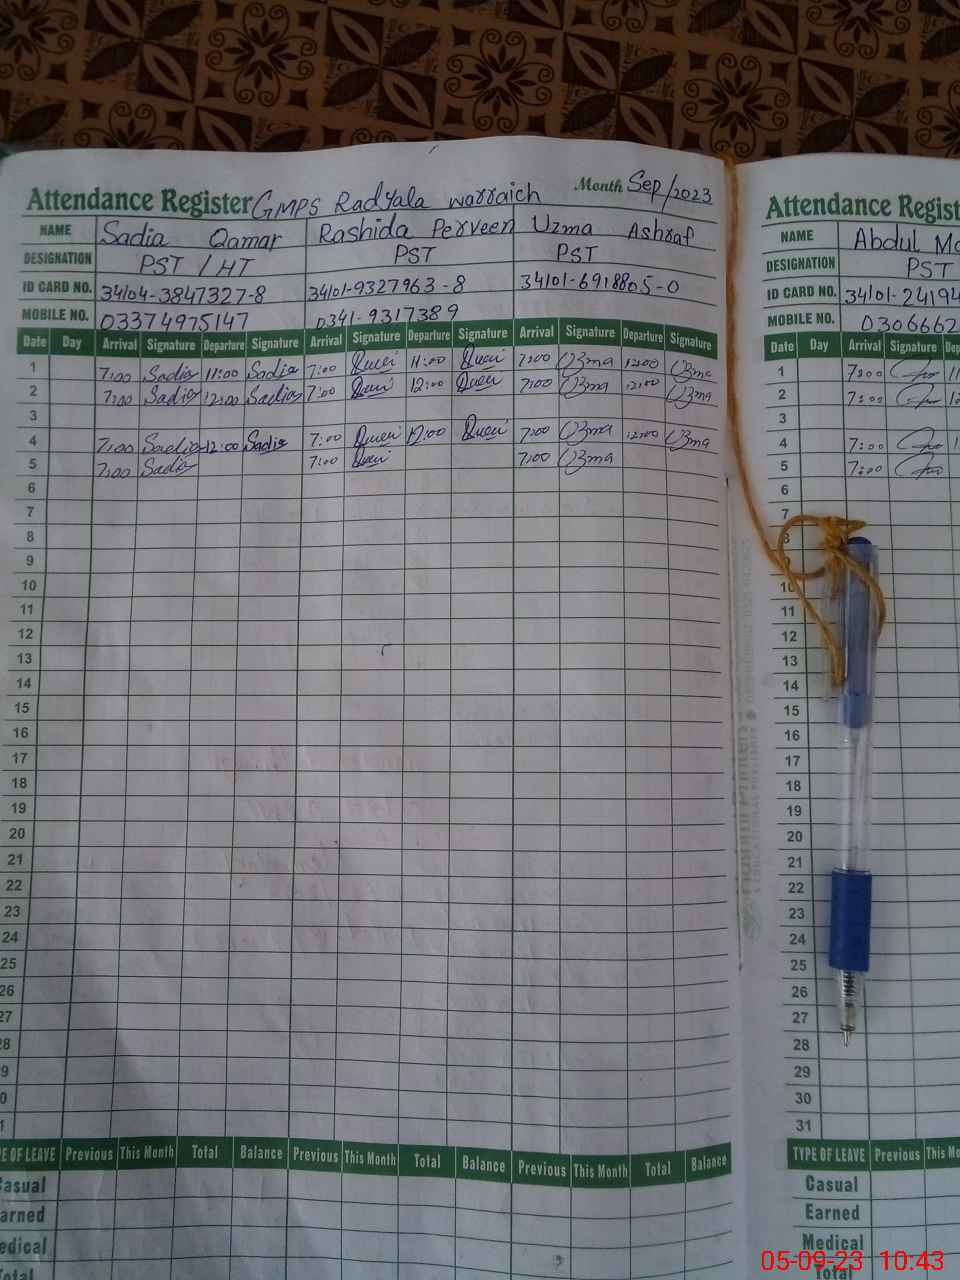 Attendance Register GMPS Radyala warraich Month Sep/2023
NAME Sadia Qamar Rashida Perveen Uzma Ashraf
DESIGNATION PST / HT PST PST
ID CARD NO. 34104-3847327-8 34101-9327963-8 34101-6918805-0
MOBILE NO. 03374975147 0341-9317389
Date Day Arrival Signature Departure Signature Arrival Signature Departure Signature Arrival Signature Departure Signature
1 7:00 Sadia 11:00 Sadia 7:00 11:00 7:00 Uzma 12:00 Uzma
2 7:00 Sadia 12:00 Sadia 7:00 12:00 7:00 Uzma 12:00 Uzma
3
4 7:00 Sadia 12:00 Sadia 7:00 12:00 7:00 Uzma 12:00 Uzma
5 7:00 Sadia 7:00 7:00 Uzma
6
7
8
9
10
11
12
13
14
15
16
17
18
19
20
21
22
23
24
25
26
27
28
9
0
1
PE OF LEAVE Previous This Month Total Balance Previous This Month Total Balance Previous This Month Total Balance
Casual
arned
edical
Total
Attendance Regist
NAME Abdul Mo
DESIGNATION PST
ID CARD NO. 34101-24194
MOBILE NO. 0306662
Date Day Arrival Signature Depa
1 7:00
2 7:00
3
4 7:00
5 7:00
6
7
8
10
11
12
13
14
15
16
17
18
19
20
21
22
23
24
25
26
27
28
29
30
31
TYPE OF LEAVE Previous This Mo
Casual
Earned
Medical
Total
05-09-23 10:43